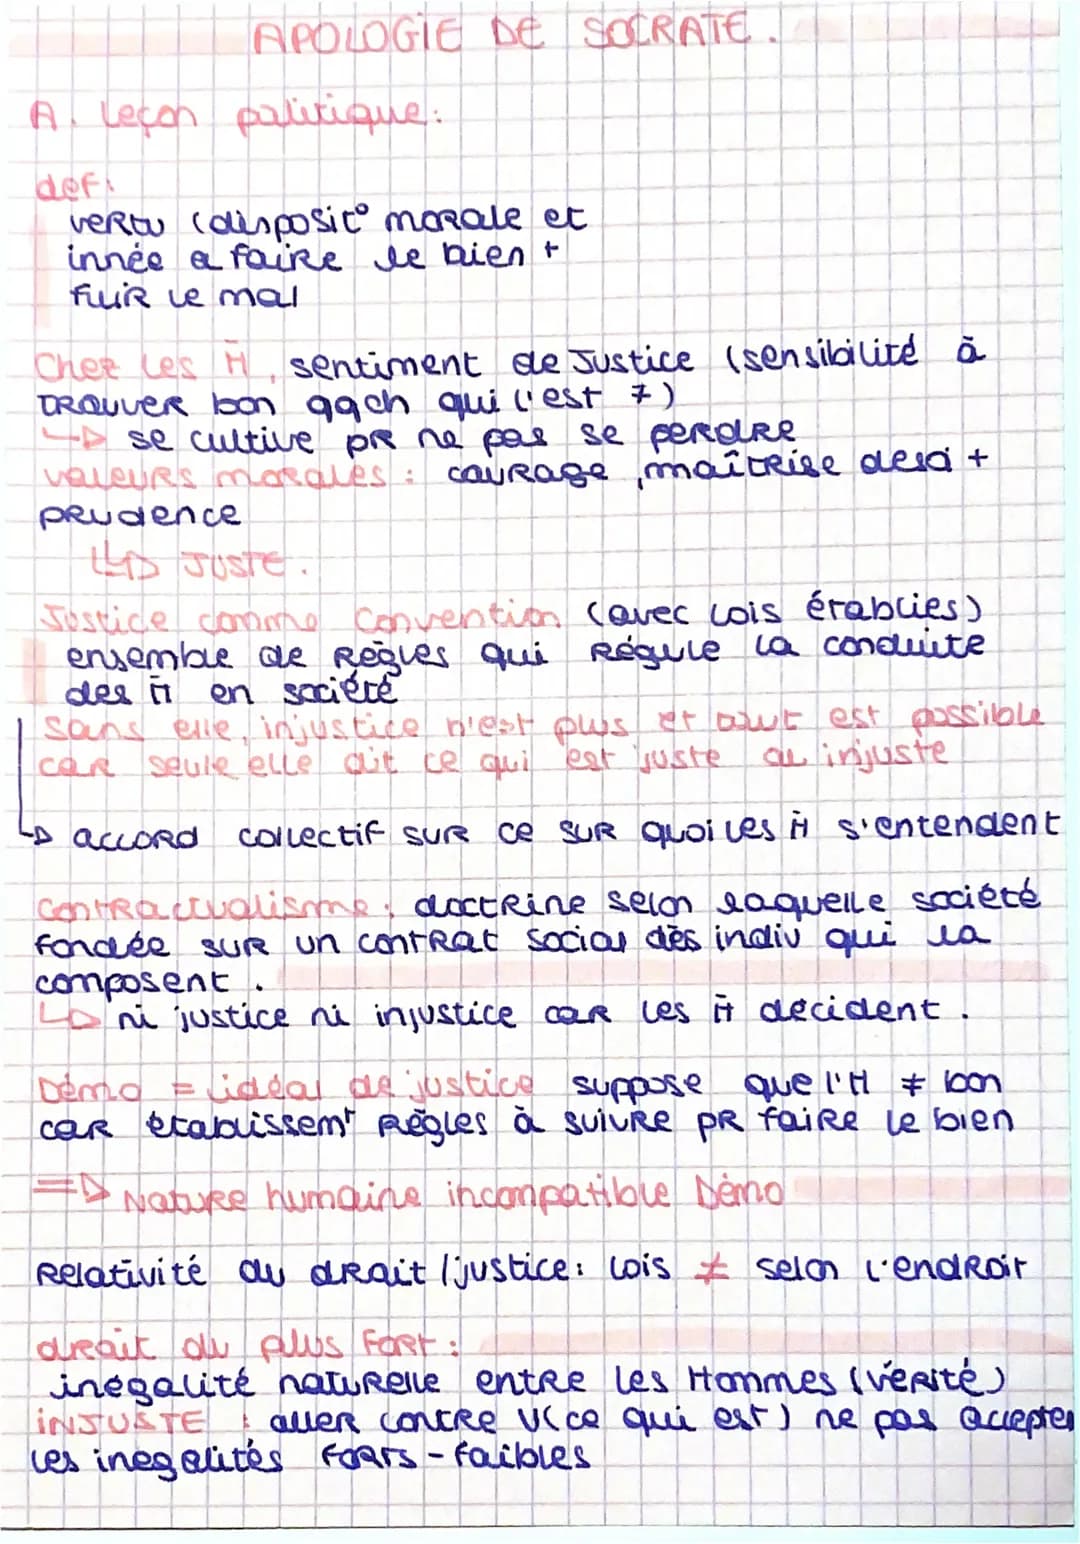 APOLOGIE DE SOCRATE.
A. Leçon politique:
def:
vertu (disposit° morale et
innée a faire le bien +
fuir le mal
Chez les H, sentiment de Justice (sensibilité à
trouver bon qqch qui l'est ≠)
↳ se cultive pr ne pas se perdre
valeurs morales : courage, maîtrise de soi +
prudence
↳ JUSTE.
Justice comme Convention (avec lois établies)
ensemble de Règles qui Régule la conduite
des H en société
sans elle, injustice n'est plus et tout est possible
car seule elle dit ce qui est juste ou injuste
↳ accord collectif sur ce sur quoi les H s'entendent
contractualisme : doctrine selon laquelle société
fondée sur un contrat social des indiv qui la
composent.
↳ ni justice ni injustice car les H decident.
Démo = idéal de justice suppose que l'H ≠ bon
car établissemt règles à suivre pr faire le bien
=> Nature humaine incompatible Démo
Relativité du droit / justice: lois ≠ selon l'endroit
droit du plus Fort :
inégalité naturelle entre les Hommes (vérité)
INJUSTE : aller contre V (ce qui est) ne pas accepter
les inegalités forts - faibles